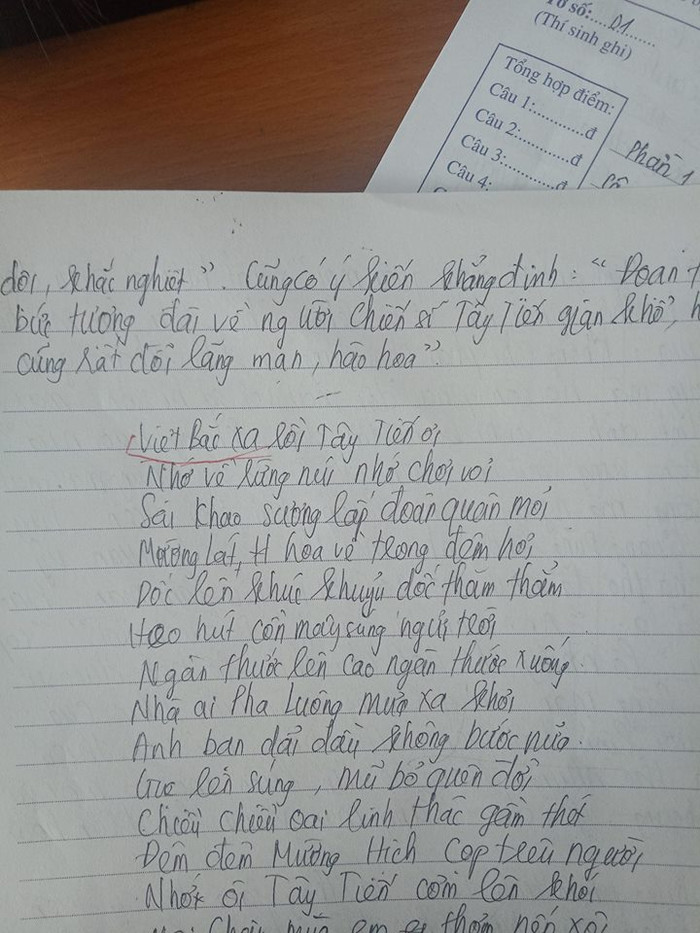 Tờ số:....01.......
(Thí sinh ghi)
Tổng hợp điểm:
Câu 1:...........đ
Câu 2:...........đ
Câu 3:...........đ
Câu 4:
Phần 1
dội, khắc nghiệt". Cũng có ý kiến khẳng định: "Đoạn t
bức tượng đài về người chiến sĩ Tây Tiến gian khổ, h
cũng rất đỗi lãng mạn, hào hoa".
Việt Bắc xa rồi Tây Tiến ơi
Nhớ về rừng núi nhớ chơi vơi
Sài Khao sương lấp đoàn quân mỏi
Mường Lát, H hoa về trong đêm hơi
Dốc lên khúc khuỷu dốc thăm thẳm
Heo hút cồn mây súng ngửi trời
Ngàn thước lên cao ngàn thước xuống.
Nhà ai Pha Luông mưa xa khơi
Anh bạn dãi dầu không bước nữa.
Gục lên súng, mũ bỏ quên đời
Chiều chiều oai linh thác gầm thét
Đêm đêm Mường Hịch cọp trêu người
Nhớ ôi Tây Tiến cơm lên khói
Mai Châu mùa em thơm nếp xôi